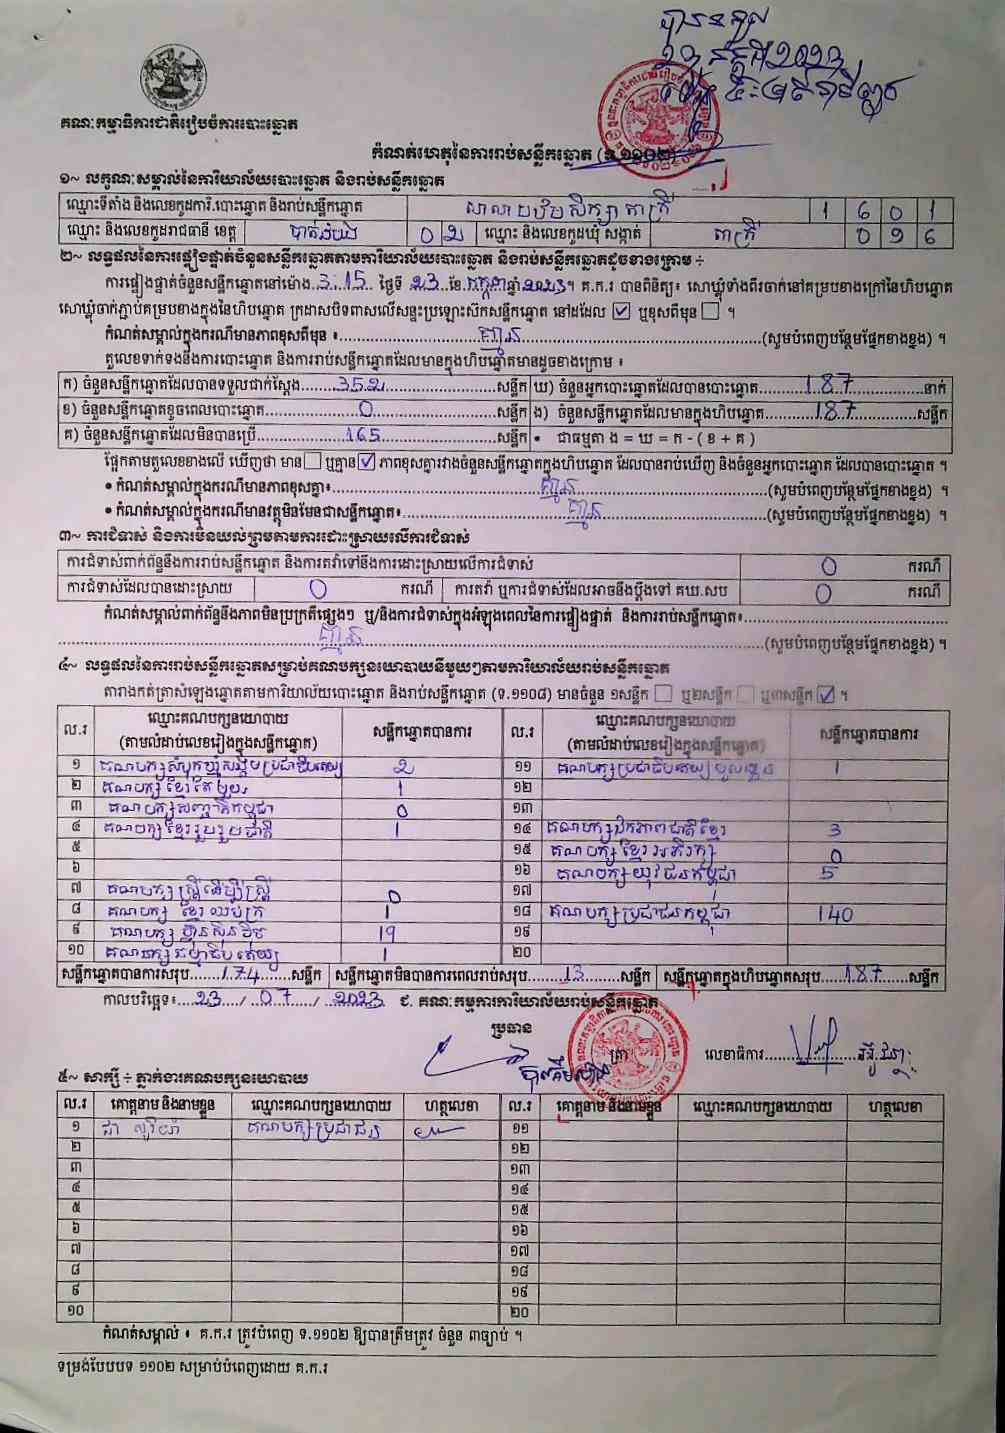 បានទទួល
23 កក្កដា 2023
គណៈកម្មាធិការជាតិរៀបចំការបោះឆ្នោត
កំណត់ហេតុនៃការរាប់សន្លឹកឆ្នោត (ទ.១១០២)
១~ លក្ខណៈសម្គាល់នៃការិយាល័យបោះឆ្នោត និងរាប់សន្លឹកឆ្នោត
ឈ្មោះទីតាំង និងលេខកូដការិ.បោះឆ្នោត និងរាប់សន្លឹកឆ្នោត សាលាបឋមសិក្សាតាគ្រី 1 6 0 1
ឈ្មោះ និងលេខកូដរាជធានី ខេត្ត បាត់ដំបង 0 2 ឈ្មោះ និងលេខកូដឃុំ សង្កាត់ តាគ្រី 0 9 6
២~ លទ្ធផលនៃការផ្ទៀងផ្ទាត់ចំនួនសន្លឹកឆ្នោតតាមការិយាល័យបោះឆ្នោត និងរាប់សន្លឹកឆ្នោតដូចខាងក្រោម ÷
ការផ្ទៀងផ្ទាត់ចំនួនសន្លឹកឆ្នោតនៅម៉ោង 3:15 ថ្ងៃទី 23 ខែ កក្កដា ឆ្នាំ 2023។ គ.ក.រ បានពិនិត្យ៖ សោឃ្លុំទាំងពីរចាក់នៅគម្របខាងក្រៅនៃហិបឆ្នោត
សោឃ្លុំចាក់ភ្ជាប់គម្របខាងក្នុងនៃហិបឆ្នោត ក្រដាសបិទពាសលើសន្ទះប្រឡោះស៊កសន្លឹកឆ្នោត នៅដដែល ☑ ឬខុសពីមុន ☐ ។
កំណត់សម្គាល់ក្នុងករណីមានភាពខុសពីមុន ៖ គ្មាន (សូមបំពេញបន្ថែមផ្នែកខាងខ្នង) ។
តួលេខទាក់ទងនឹងការបោះឆ្នោត និងការរាប់សន្លឹកឆ្នោតដែលមានក្នុងហិបឆ្នោតមានដូចខាងក្រោម ៖
ក) ចំនួនសន្លឹកឆ្នោតដែលបានទទួលជាក់ស្តែង 352 សន្លឹក ឃ) ចំនួនអ្នកបោះឆ្នោតដែលបានបោះឆ្នោត 187 នាក់
ខ) ចំនួនសន្លឹកឆ្នោតខូចពេលបោះឆ្នោត 0 សន្លឹក ង) ចំនួនសន្លឹកឆ្នោតដែលមានក្នុងហិបឆ្នោត 187 សន្លឹក
គ) ចំនួនសន្លឹកឆ្នោតដែលមិនបានប្រើ 165 សន្លឹក • ជាធម្មតា ង = ឃ = ក - ( ខ + គ )
ផ្អែកតាមតួលេខខាងលើ ឃើញថា មាន ☐ ឬគ្មាន ☑ ភាពខុសគ្នារវាងចំនួនសន្លឹកឆ្នោតក្នុងហិបឆ្នោត ដែលបានរាប់ឃើញ និងចំនួនអ្នកបោះឆ្នោត ដែលបានបោះឆ្នោត ។
• កំណត់សម្គាល់ក្នុងករណីមានភាពខុសគ្នា៖ គ្មាន (សូមបំពេញបន្ថែមផ្នែកខាងខ្នង) ។
• កំណត់សម្គាល់ក្នុងករណីមានវត្ថុមិនមែនជាសន្លឹកឆ្នោត៖ គ្មាន (សូមបំពេញបន្ថែមផ្នែកខាងខ្នង) ។
៣~ ការជំទាស់ និងការមិនយល់ព្រមតាមការដោះស្រាយលើការជំទាស់
ការជំទាស់ពាក់ព័ន្ធនឹងការរាប់សន្លឹកឆ្នោត និងការតវ៉ាទៅនឹងការដោះស្រាយលើការជំទាស់ 0 ករណី
ការជំទាស់ដែលបានដោះស្រាយ 0 ករណី ការតវ៉ា ឬការជំទាស់ដែលអាចនឹងប្តឹងទៅ គឃ.សប 0 ករណី
កំណត់សម្គាល់ពាក់ព័ន្ធនឹងភាពមិនប្រក្រតីផ្សេងៗ ឬ/និងការជំទាស់ក្នុងអំឡុងពេលនៃការផ្ទៀងផ្ទាត់ និងការរាប់សន្លឹកឆ្នោត៖
គ្មាន (សូមបំពេញបន្ថែមផ្នែកខាងខ្នង) ។
៤~ លទ្ធផលនៃការរាប់សន្លឹកឆ្នោតសម្រាប់គណបក្សនយោបាយនីមួយៗតាមការិយាល័យរាប់សន្លឹកឆ្នោត
តារាងកត់ត្រាសំឡេងឆ្នោតតាមការិយាល័យបោះឆ្នោត និងរាប់សន្លឹកឆ្នោត (ទ.១១០៨) មានចំនួន ១សន្លឹក ☐ ឬ២សន្លឹក ☐ ឬ៣សន្លឹក ☑ ។
ល.រ ឈ្មោះគណបក្សនយោបាយ (តាមលំដាប់លេខរៀងក្នុងសន្លឹកឆ្នោត) សន្លឹកឆ្នោតបានការ ល.រ ឈ្មោះគណបក្សនយោបាយ (តាមលំដាប់លេខរៀងក្នុងសន្លឹកឆ្នោត) សន្លឹកឆ្នោតបានការ
១ គណបក្សសំបុកឃ្មុំសង្គមប្រជាធិបតេយ្យ 2 ១១ គណបក្សប្រជាធិបតេយ្យមូលដ្ឋាន 1
២ គណបក្សខ្មែរតែមួយ 1 ១២
៣ គណបក្សសញ្ជាតិកម្ពុជា 0 ១៣
៤ គណបក្សខ្មែររួបរួមជាតិ 1 ១៤ គណបក្សឯកភាពជាតិខ្មែរ 3
៥ ១៥ គណបក្សខ្មែរអភិរក្ស 0
៦ ១៦ គណបក្សយុវជនកម្ពុជា 5
៧ គណបក្សស្ត្រីដើម្បីស្ត្រី 0 ១៧
៨ គណបក្ស ខ្មែរឈប់ក្រ 1 ១៨ គណបក្សប្រជាជនកម្ពុជា 140
៩ គណបក្សហ្វ៊ុនស៊ិនប៉ិច 19 ១៩
១០ គណបក្សធម្មាធិបតេយ្យ 1 ២០
សន្លឹកឆ្នោតបានការសរុប 174 សន្លឹក សន្លឹកឆ្នោតមិនបានការពេលរាប់សរុប 13 សន្លឹក សន្លឹកឆ្នោតក្នុងហិបឆ្នោតសរុប 187 សន្លឹក
កាលបរិច្ឆេទ៖ 23 / 07 / 2023 ជ. គណៈកម្មការការិយាល័យរាប់សន្លឹកឆ្នោត
ប្រធាន
ត្រា លេខាធិការ
៥~ សាក្សី ÷ ភ្នាក់ងារគណបក្សនយោបាយ
ល.រ គោត្តនាម និងនាមខ្លួន ឈ្មោះគណបក្សនយោបាយ ហត្ថលេខា ល.រ គោត្តនាម និងនាមខ្លួន ឈ្មោះគណបក្សនយោបាយ ហត្ថលេខា
១ គណបក្សប្រជាជន ១១
២ ១២
៣ ១៣
៤ ១៤
៥ ១៥
៦ ១៦
៧ ១៧
៨ ១៨
៩ ១៩
១០ ២០
កំណត់សម្គាល់ ៖ គ.ក.រ ត្រូវបំពេញ ទ.១១០២ ឱ្យបានត្រឹមត្រូវ ចំនួន ៣ច្បាប់ ។
ទម្រង់បែបបទ ១១០២ សម្រាប់បំពេញដោយ គ.ក.រ